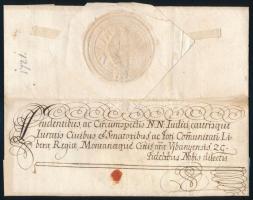 1721.
Prudentibus, ac Circumspectis N.N. Iudici caeterisque
Iuratis Civibus & Senatoribus, ac toti Comunitati Li-
beræ Regiæ, Montanæque Civitis nrae Ujbanyensis &c
Fidelibus Nobis dilectis